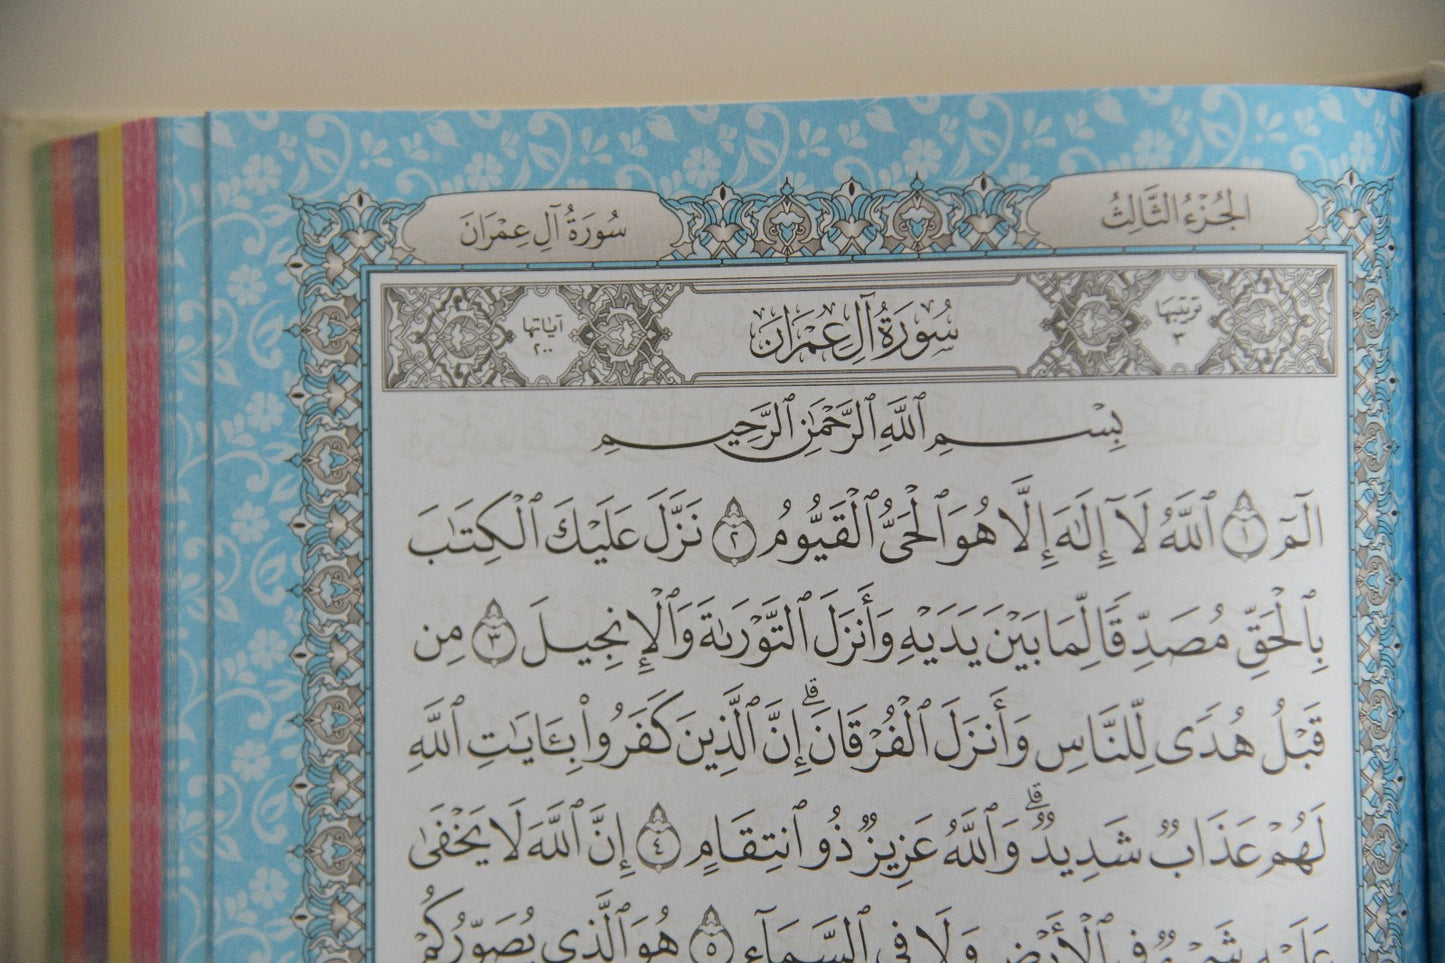 الجُزْءُ الثَّالِثُ
سُورَةُ آلِ عِمْرَانَ
ترتيبها ٣
سُورَةُ آلِ عِمْرَانَ
آياتها ٢٠٠
بِسْمِ ٱللَّهِ ٱلرَّحْمَٰنِ ٱلرَّحِيمِ
الٓمٓ ١ ٱللَّهُ لَآ إِلَٰهَ إِلَّا هُوَ ٱلْحَىُّ ٱلْقَيُّومُ ٢ نَزَّلَ عَلَيْكَ ٱلْكِتَٰبَ
بِٱلْحَقِّ مُصَدِّقًا لِّمَا بَيْنَ يَدَيْهِ وَأَنزَلَ ٱلتَّوْرَىٰةَ وَٱلْإِنجِيلَ ٣ مِن
قَبْلُ هُدًى لِّلنَّاسِ وَأَنزَلَ ٱلْفُرْقَانَ ۗ إِنَّ ٱلَّذِينَ كَفَرُوا۟ بِـَٔايَٰتِ ٱللَّهِ
لَهُمْ عَذَابٌ شَدِيدٌ ۗ وَٱللَّهُ عَزِيزٌ ذُو ٱنتِقَامٍ ٤ إِنَّ ٱللَّهَ لَا يَخْفَىٰ
عَلَيْهِ شَىْءٌ فِى ٱلْأَرْضِ وَلَا فِى ٱلسَّمَآءِ ٥ هُوَ ٱلَّذِى يُصَوِّرُكُمْ